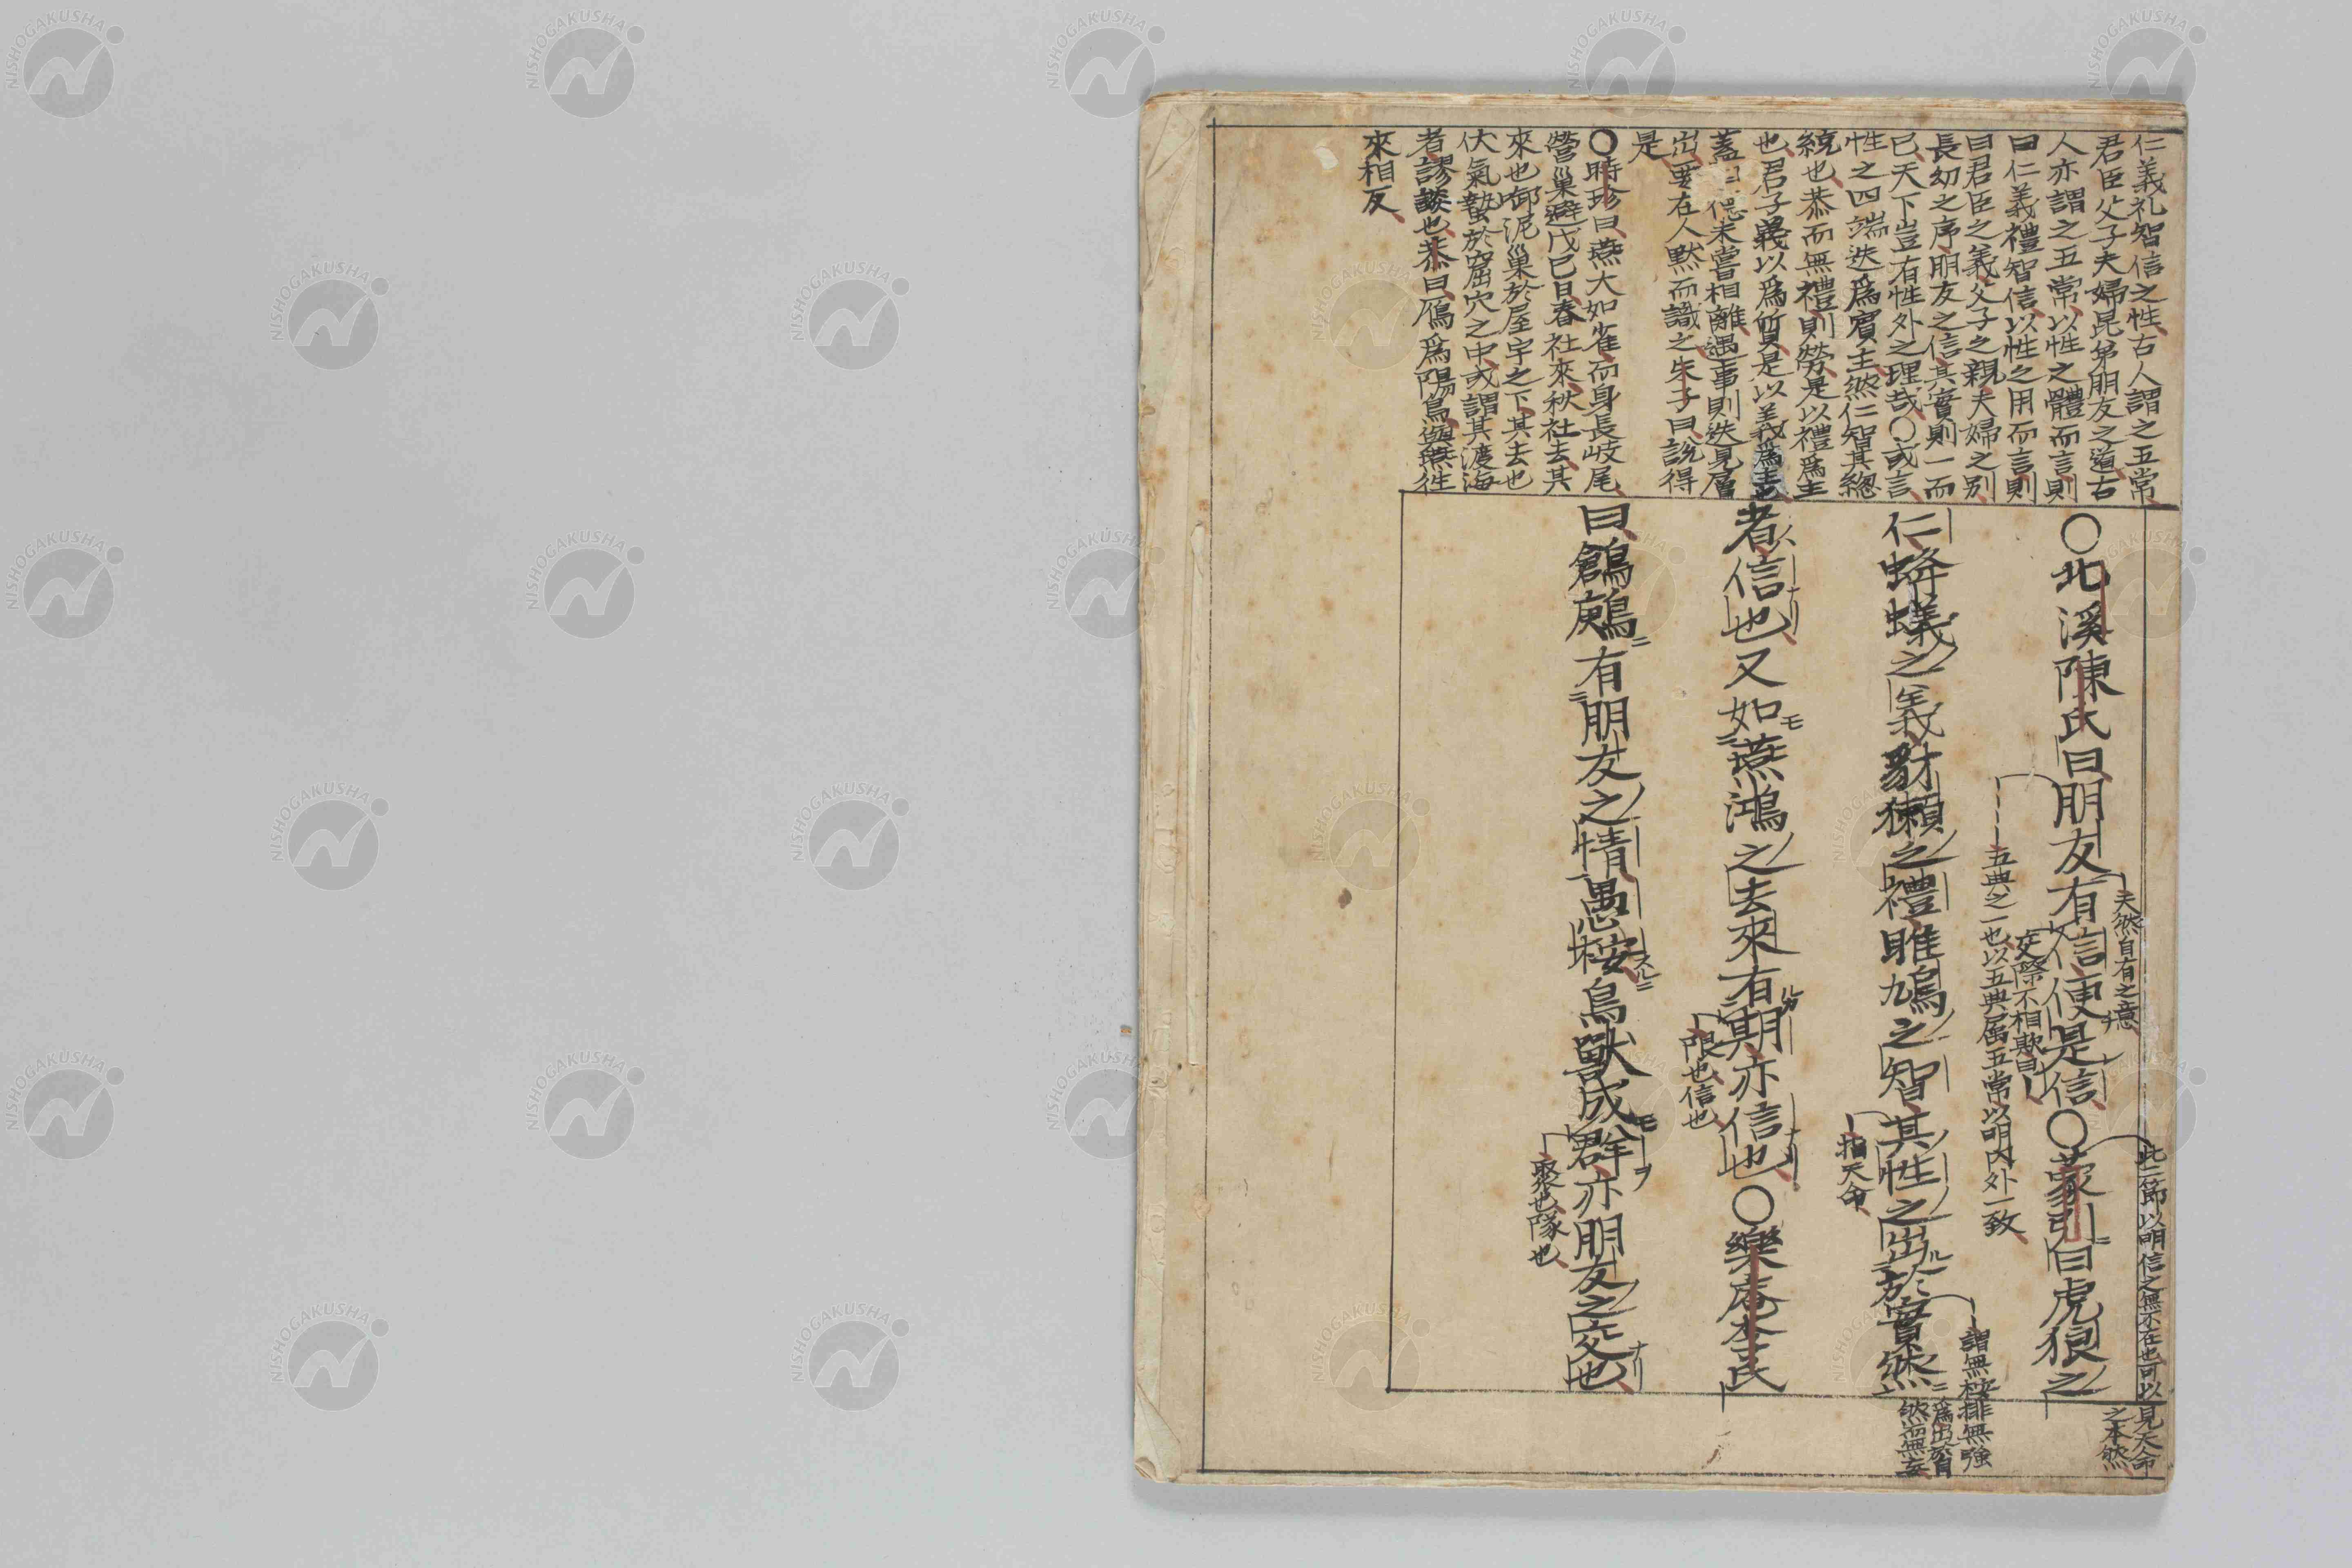 仁義礼智信之性古人謂之五常
君臣父子夫婦昆弟朋友之道古
人亦謂之五常以性之體而言則
曰仁義禮智信以性之用而言則
曰君臣之義父子之親夫婦之別
長幼之序朋友之信其實則一而
已天下豈有性外之理哉〇或言
性之四端迭爲賓主然仁智其總
統也恭而無禮則勞是以禮爲主
也君子義以爲質是以義爲主也
蓋四德未嘗相離遇事則迭見層
出要在人默而識之朱子曰說得
是
〇時珍曰燕大如雀而身長岐尾
營巢避戊己日春社來秋社去其
來也啣泥巢於屋宇之下其去也
伏氣蟄於窟穴之中或謂其渡海
者謬談也恭曰鴈爲陽鳥與燕往
來相反
〇北溪陳氏曰朋友有信便是信〇蒙引曰虎狼之
仁蜂蟻之義豺獺之禮雎鳩之智其性之出於實然
者信也又如燕鴻之去來有期亦信也〇樂庵李氏
曰鶬鶊有朋友之情愚按鳥獸成群亦朋友之交也
天然自有之意
交際不相欺曰
五典之一也以五典屬五常以明內外一致
此二節以明信之無不在也可以
見天命
之本然
指天命
謂無按排無強
爲出於自
然而無妄
限也信也
聚也隊也